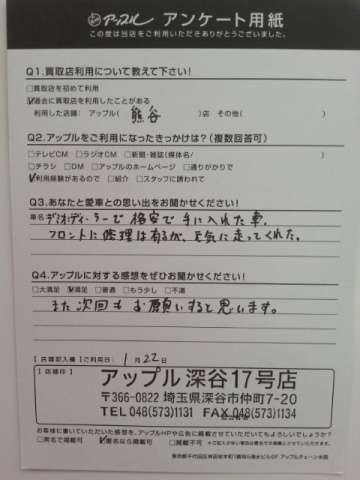 アップル アンケート用紙
この度は当店をご利用いただきありがとうございました。
Q1.買取店利用について教えて下さい!
□買取店を初めて利用
☑過去に買取店を利用したことがある
利用した店舗：アップル( 熊谷 )店 その他( )
Q2.アップルをご利用になったきっかけは?(複数回答可)
□テレビCM □ラジオCM □新聞・雑誌(媒体名/ )
□チラシ □DM □アップルのホームページ □通りがかりで
☑利用経験があるので □紹介 □スタッフに誘われて
Q3.あなたと愛車との思い出をお聞かせください!
車名 デミオディーラーで格安で手に入れた車。
フロントに修理は有るが、元気に走ってくれた。
Q4.アップルに対する感想をぜひお聞かせください!
□大満足 ☑満足 □普通 □もう少し □不満
また次回もお願いすると思います。
【店舗記入欄】ご利用日： 1月22日
【店舗印】
アップル深谷17号店
〒366-0822 埼玉県深谷市仲町7-20
TEL 048(573)1131 FAX 048(573)1134
お客様に書いていただいた感想を、アップルHPや広告に掲載させていただいてもよろしいでしょうか?
□実名で掲載可 ☑匿名なら掲載可 □掲載不可